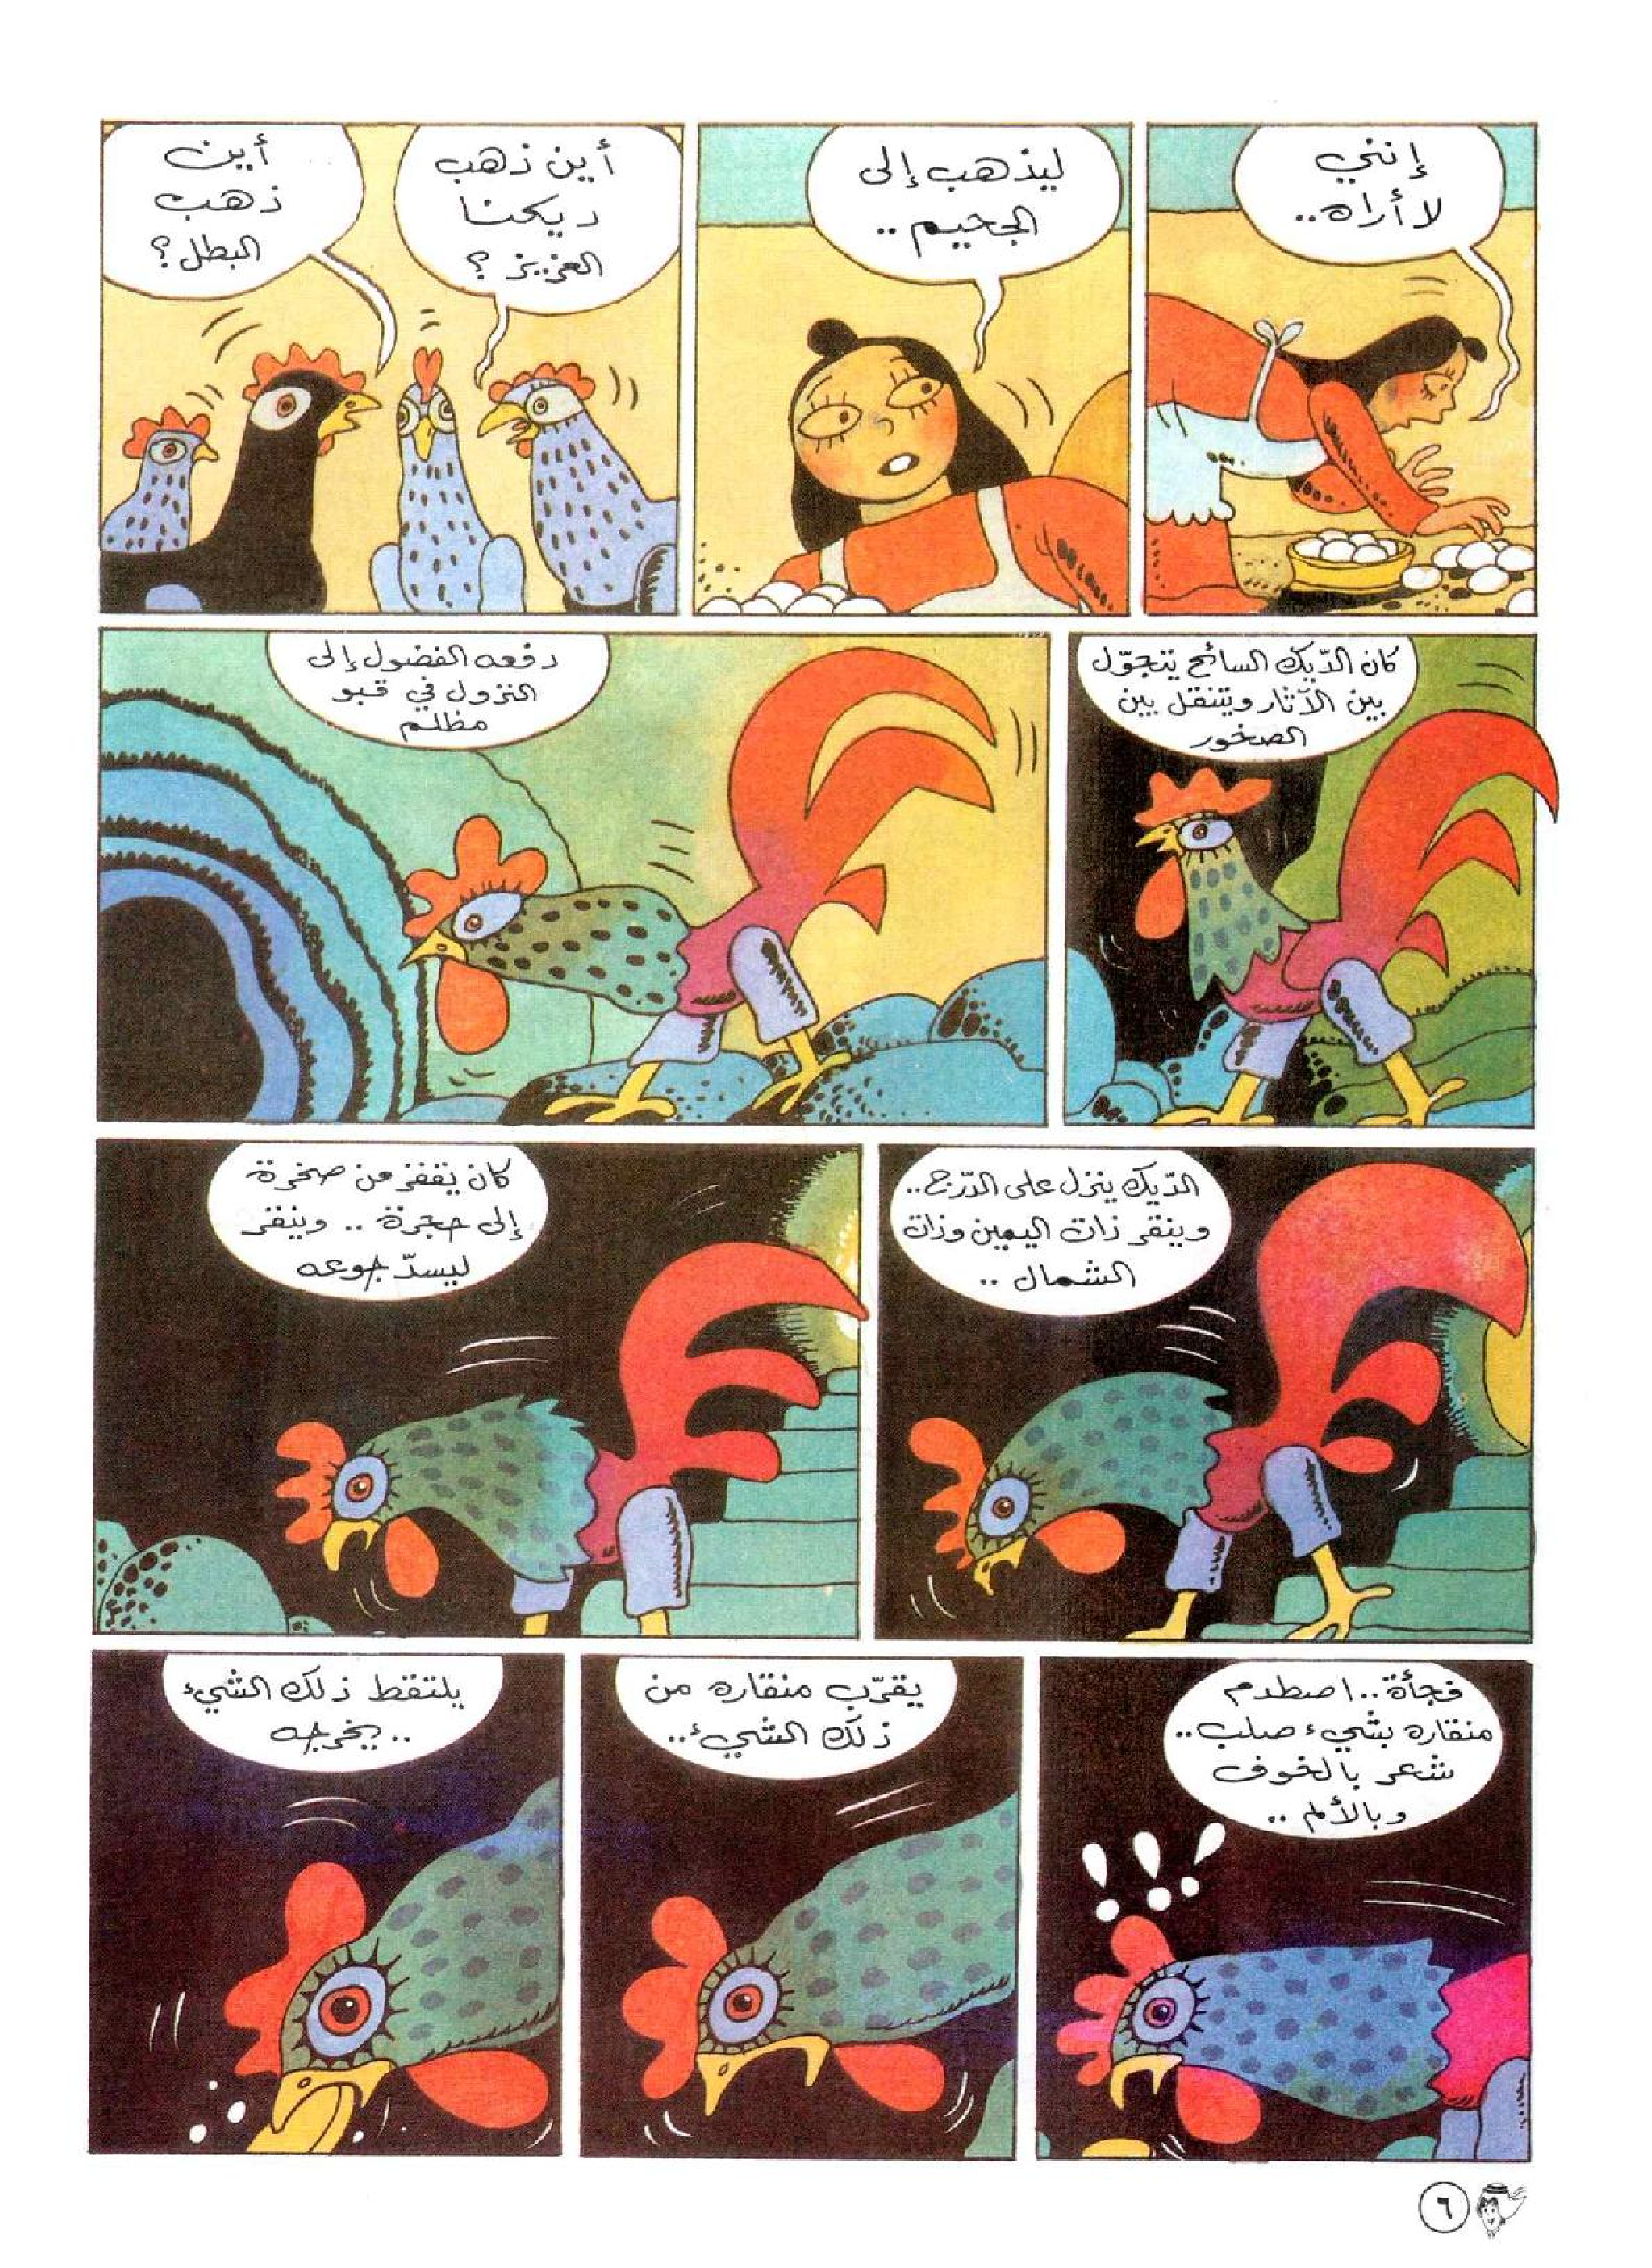 إنني
لا أراه..
ليذهب إلى
الجحيم..
أين ذهب
ديكنا
العزيز؟
أين
ذهب
البطل؟
كان الدّيك السائح يتجوّل
بين الآثار ويتنقل بين
الصخور
دفعه الفضول إلى
النزول في قبو
مظلم
الدّيك ينزل على الدّرج..
وينقر ذات اليمين وذات
الشمال..
كان يقفز من صخرة
إلى حجرة.. وينقر
ليسدّ جوعه
فجأة.. اصطدم
منقاره بشيء صلب..
شعر بالخوف
وبالألم..
يقرّب منقاره من
ذلك الشيء..
يلتقط ذلك الشيء
..يخرجه
٦